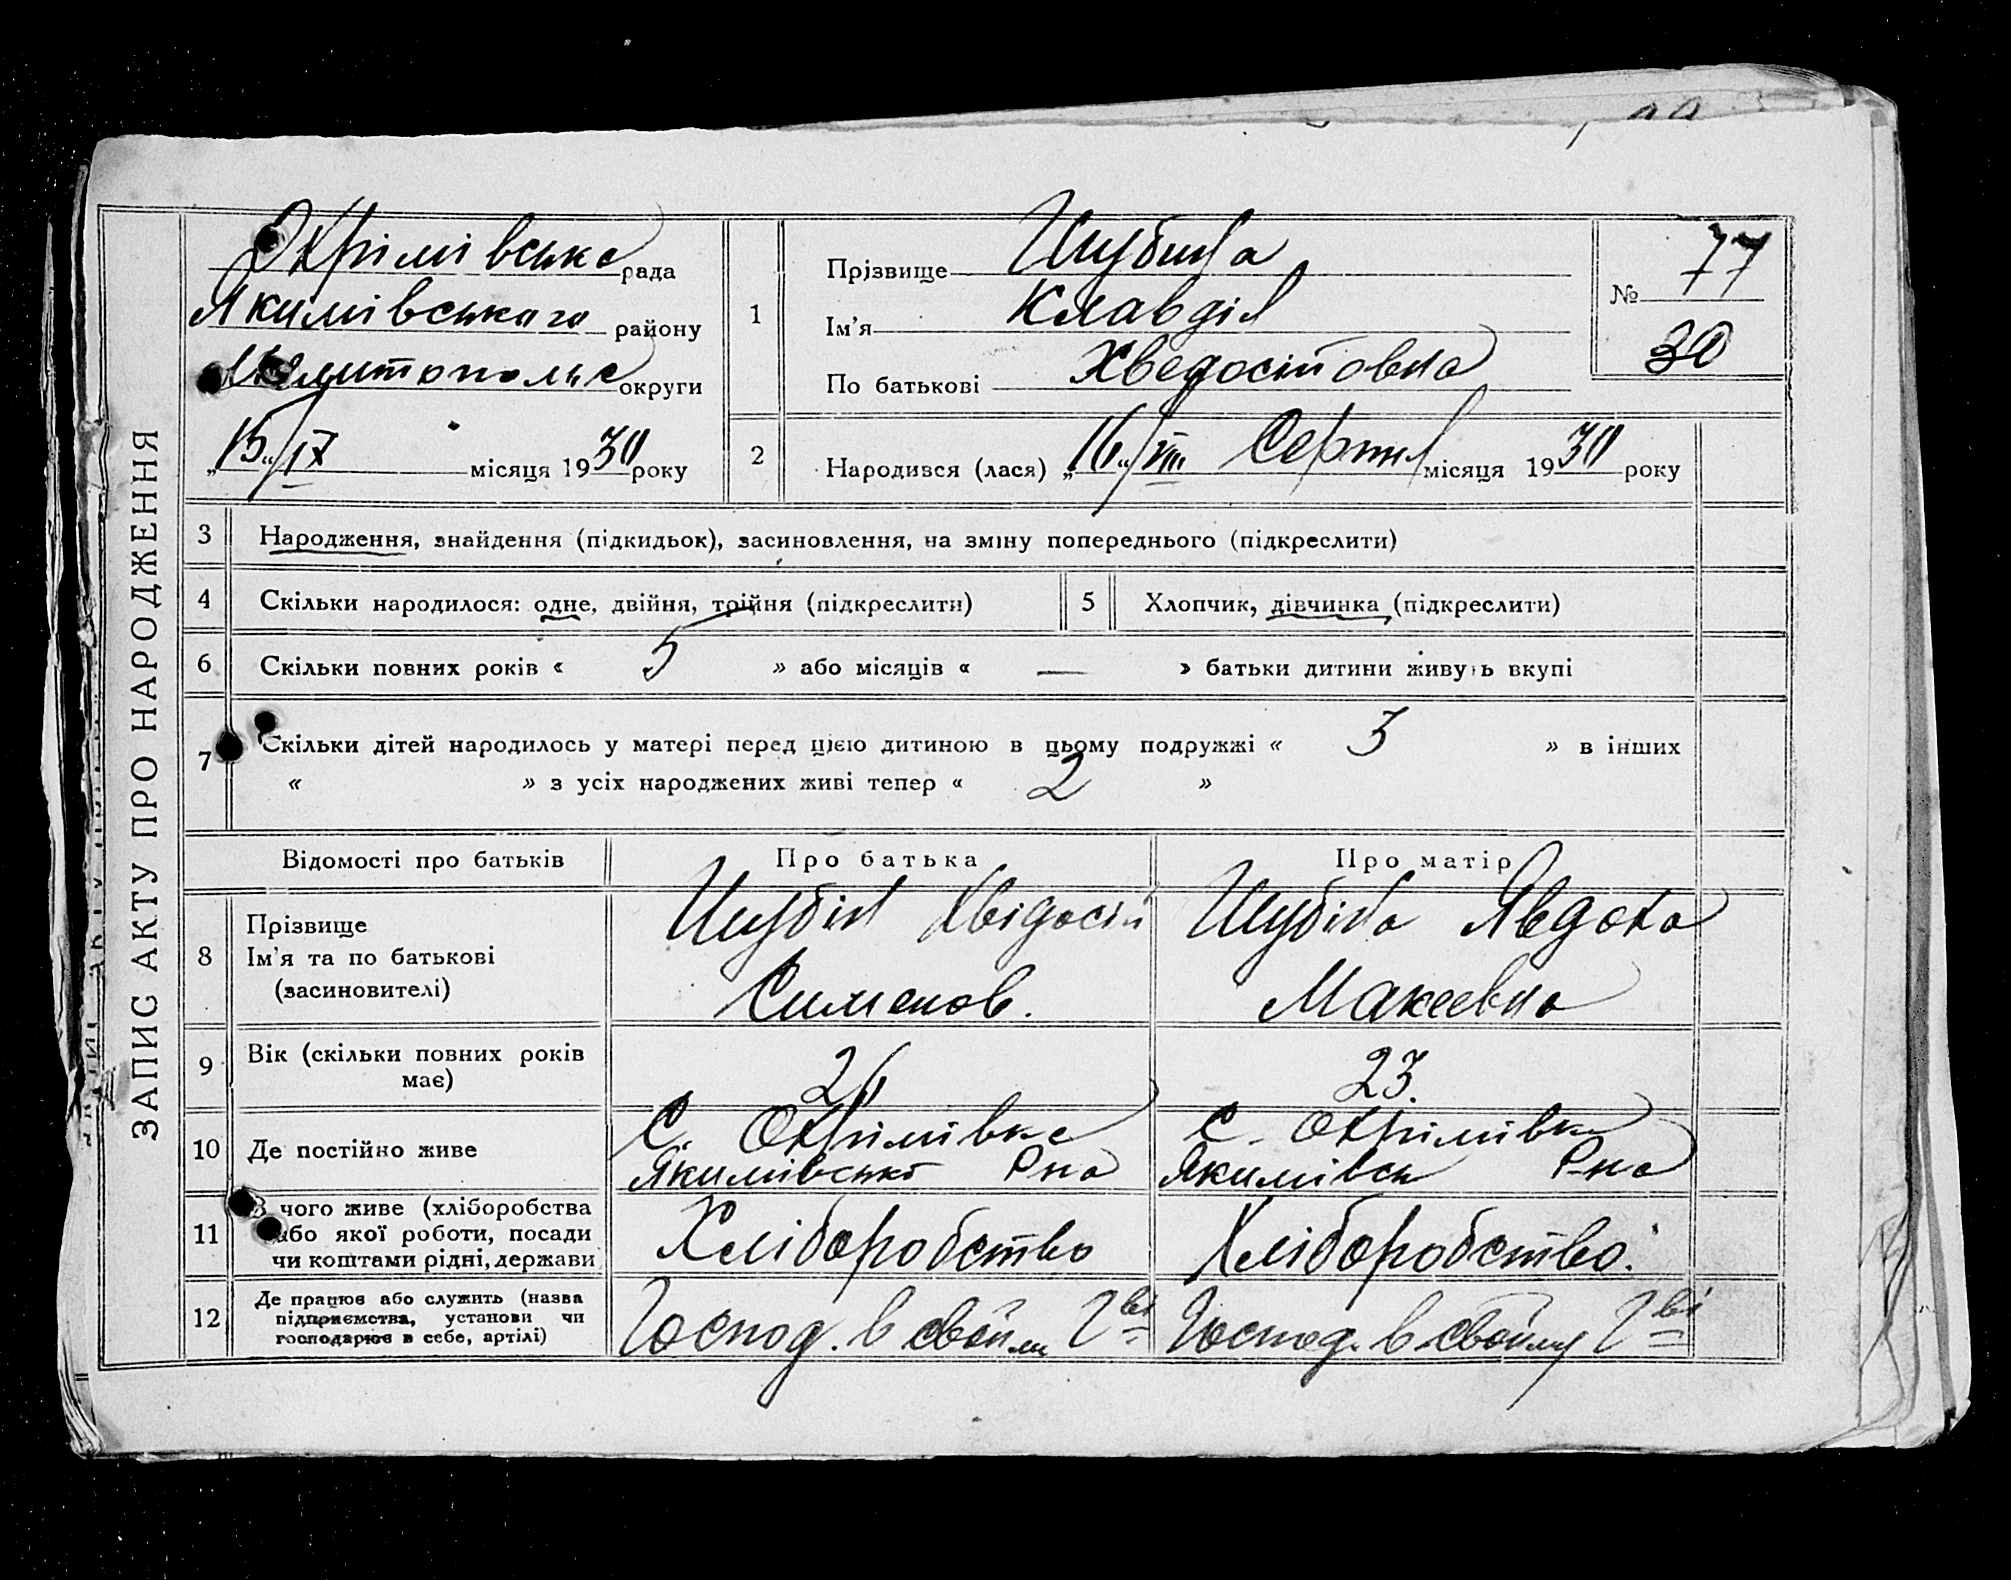 ЗАПИС АКТУ ПРО НАРОДЖЕННЯ
Охрімівська рада
Якимівського району
Мелитопольс округи
„15“/IX місяця 1930 року
1
Прізвище Шубина
Ім'я Клавдія
По батькові Хведосіӣовна
№ 77
30
2
Народився (лася) „16“/VIII Серпня місяця 1930 року
3 Народження, знайдення (підкидьок), засиновлення, на зміну попереднього (підкреслити)
4 Скільки народилося: одне, двійня, трійня (підкреслити)
5 Хлопчик, дівчинка (підкреслити)
6 Скільки повних років « 5 » або місяців « — » батьки дитини живуть вкупі
7 Скільки дітей народилось у матері перед цією дитиною в цьому подружжі « 3 » в інших
« » з усіх народжених живі тепер « 2 »
Відомості про батьків Про батька Про матір
8 Прізвище
Ім'я та по батькові
(засиновителі)
Шубін Хвідосій
Сименов.
Шубіна Явдоха
Макеевна
9 Вік (скільки повних років
має)
26
23.
10 Де постійно живе
С. Охрімівка
Якимівсько Р-на
С. Охрімівка
Якимівськ Р-на
11 З чого живе (хліборобства
або якої роботи, посади
чи коштами рідні, держави
Хліборобство
Хліборобство.
12 Де працює або служить (назва
підприємства, установи чи
господарює в себе, артілі)
Господ. в свойм Г-ві
Господ. в свойму Г-ві